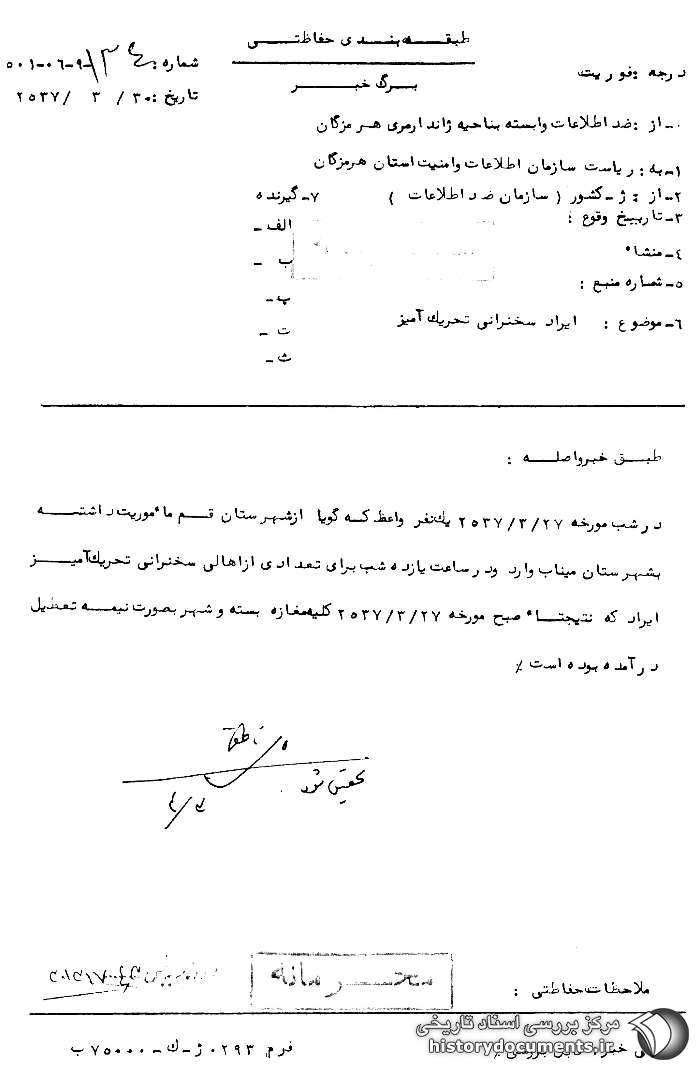 طبقه بندی حفاظتی
درجه فوریت :
شماره : ۵۰۱-۰۶-۹-
برگ خبر
تاریخ : ۳۰ / ۳ / ۲۵۳۷
۰-از : ضد اطلاعات وابسته بناحیه ژاندارمری هرمزگان
۱-به : ریاست سازمان اطلاعات وامنیت استان هرمزگان
۲-از : ژ-کشور ( سازمان ضد اطلاعات )
۳-تاریخ وقوع :
۴-منشاء
۵-شماره منبع :
۶-موضوع : ایراد سخنرانی تحریک آمیز
۷-گیرنده
الف -
ب -
پ -
ت -
ث -
طبق خبر واصله :
در شب مورخه ۲۵۳۷/۳/۲۷ یکنفر واعظ که گویا ازشهرستان قم مأموریت داشته
بشهرستان میناب وارد ودر ساعت یازده شب برای تعدادی ازاهالی سخنرانی تحریک آمیز
ایراد که نتیجتاء صبح مورخه ۲۵۳۷/۳/۲۷ کلیه مغازه بسته و شهر بصورت نیمه تعطیل
درآمده بوده است ٪
تحقیق شود
محرمانه
ملاحظات حفاظتی :
فرم ۰۲۹۳ ژ-ک-۷۵۰۰۰ ب
مرکز بررسی اسناد تاریخی
historydocuments.ir